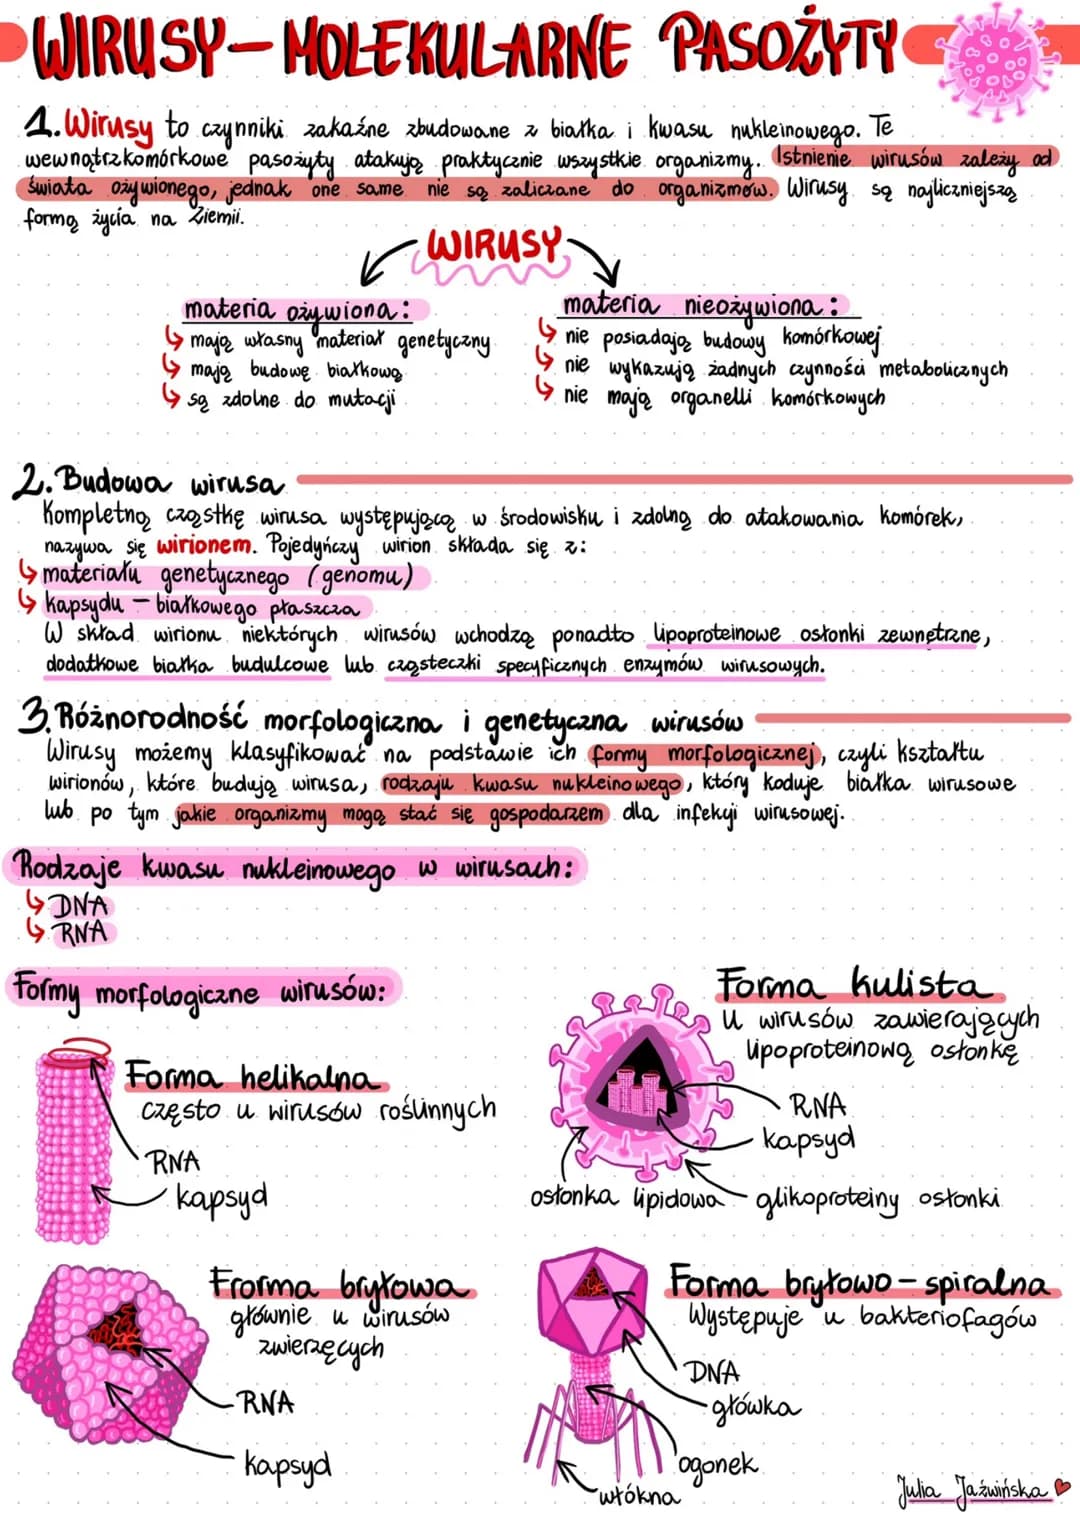 WIRUSY-MOLEKULARNE PASOŻYTY
1. Wirusy to czynniki zakaźne zbudowane z białka i kwasu nukleinowego. Te
wewnątrzkomórkowe pasożyty atakują praktycznie wszystkie organizmy. Istnienie wirusów zależy od
świata ożywionego, jednak one same nie są zaliczane do organizmów. Wirusy są najliczniejszą
formą życia na Ziemii.
WIRUSY
materia ożywiona:
mają własny materiał genetyczny
mają budowę białkową
są zdolne do mutacji
materia nieożywiona:
nie posiadają budowy komórkowej
nie wykazują żadnych czynności metabolicznych
nie mają organelli komórkowych
2. Budowa wirusa
Kompletną cząstkę wirusa występującą w środowisku i zdolną do atakowania komórek,
nazywa się wirionem. Pojedyńczy wirion składa się z:
materiału genetycznego (genomu)
kapsydu - białkowego płaszcza
W skład wirionu niektórych wirusów wchodzą ponadto lipoproteinowe osłonki zewnętrzne,
dodatkowe białka budulcowe lub cząsteczki specyficznych enzymów wirusowych.
3. Różnorodność morfologiczna i genetyczna wirusów
Wirusy możemy klasyfikować na podstawie ich formy morfologicznej, czyli kształtu
wirionów, które budują wirusa, rodzaju kwasu nukleinowego, który koduje białka wirusowe
lub po tym jakie organizmy mogą stać się gospodarzem dla infekcji wirusowej.
Rodzaje kwasu nukleinowego w wirusach:
DNA
RNA
Formy morfologiczne wirusów:
Forma helikalna
często u wirusów roślinnych
RNA
kapsyd
Forma kulista
U wirusów zawierających
lipoproteinową osłonkę
RNA
kapsyd
osłonka lipidowa
glikoproteiny osłonki
Frorma bryłowa
głównie u wirusów
zwierzęcych
RNA
kapsyd
Forma bryłowo-spiralna
Występuje u bakteriofagów
DNA
główka
ogonek
włókna
Julia Jaźwińska